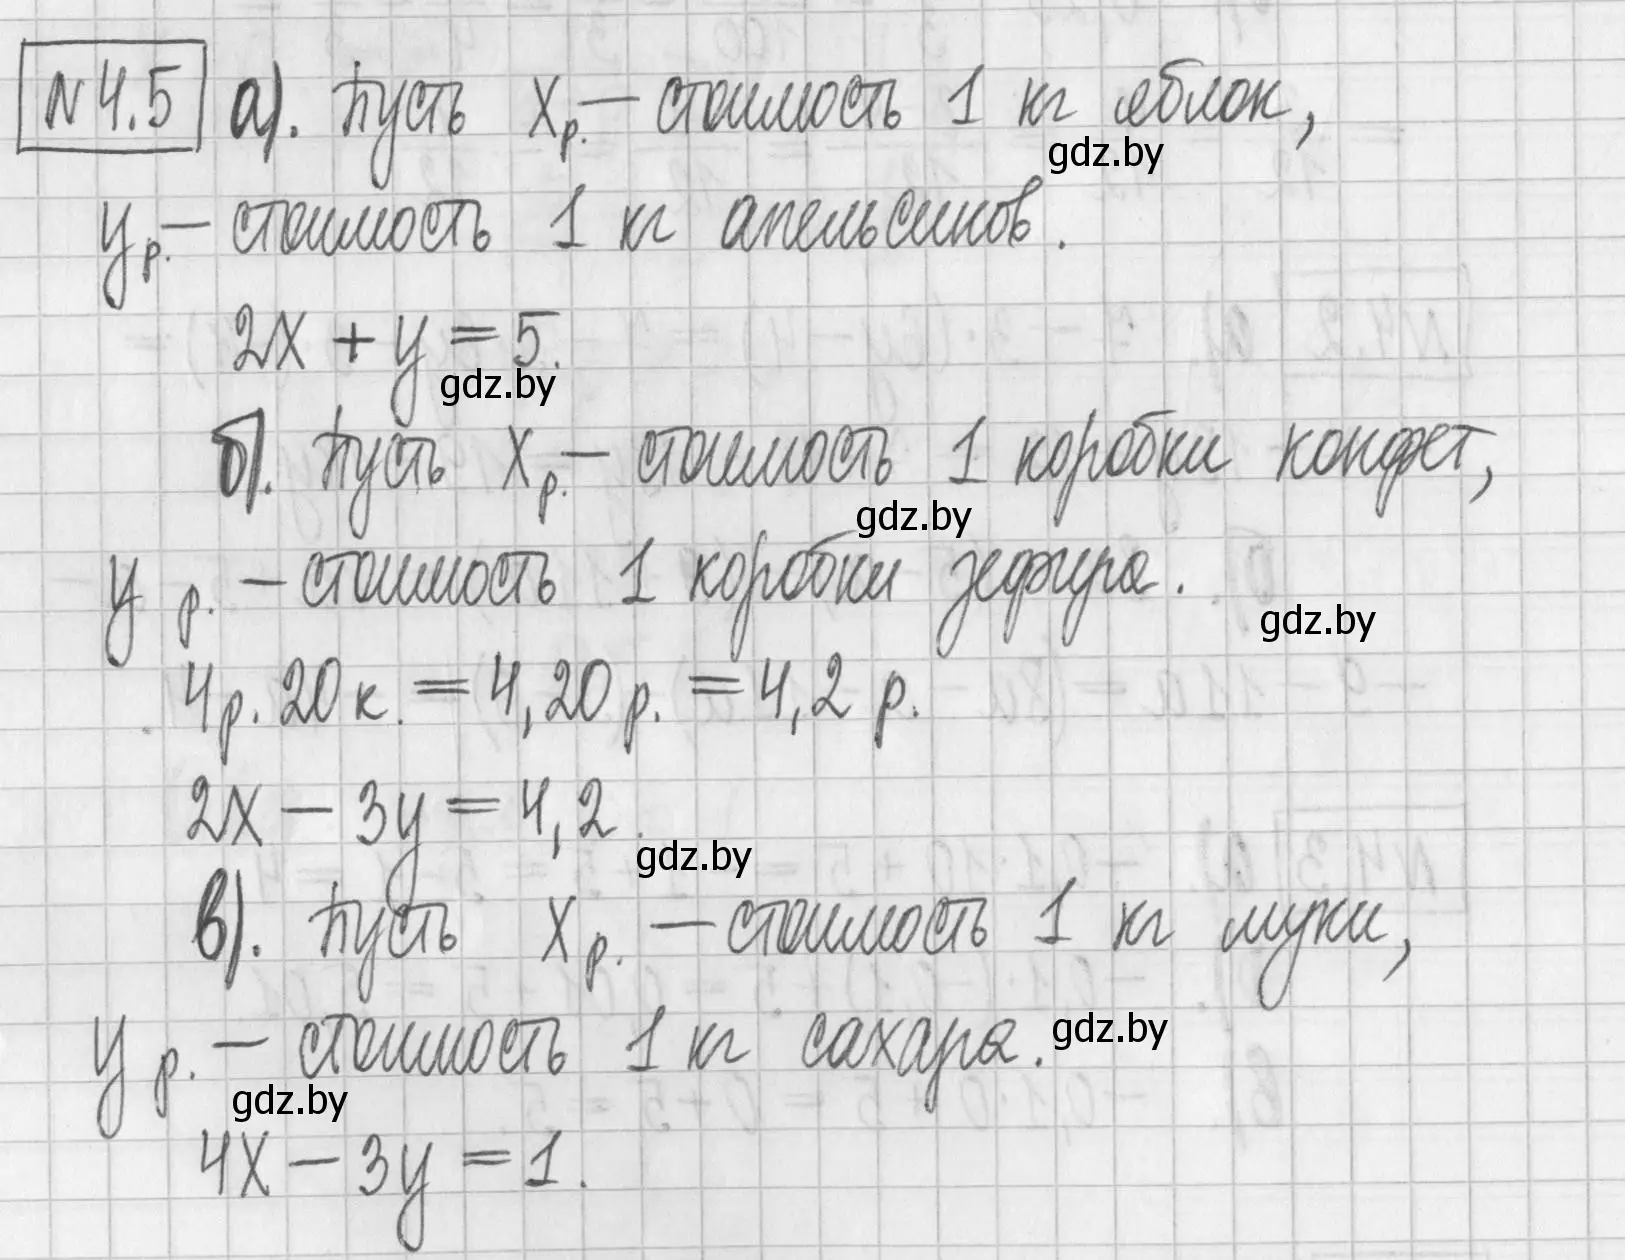 №4.5 а). Пусть x р. — стоимость 1 кг яблок,
gdz.by
y р. — стоимость 1 кг апельсинов.
2x + y = 5.
gdz.by
б). Пусть x р. — стоимость 1 коробки конфет,
gdz.by
y р. — стоимость 1 коробки зефира.
gdz.by
4 р. 20 к. = 4,20 р. = 4,2 р.
2x — 3y = 4,2.
gdz.by
в). Пусть x р. — стоимость 1 кг муки,
y р. — стоимость 1 кг сахара.
gdz.by
gdz.by
4x — 3y = 1.